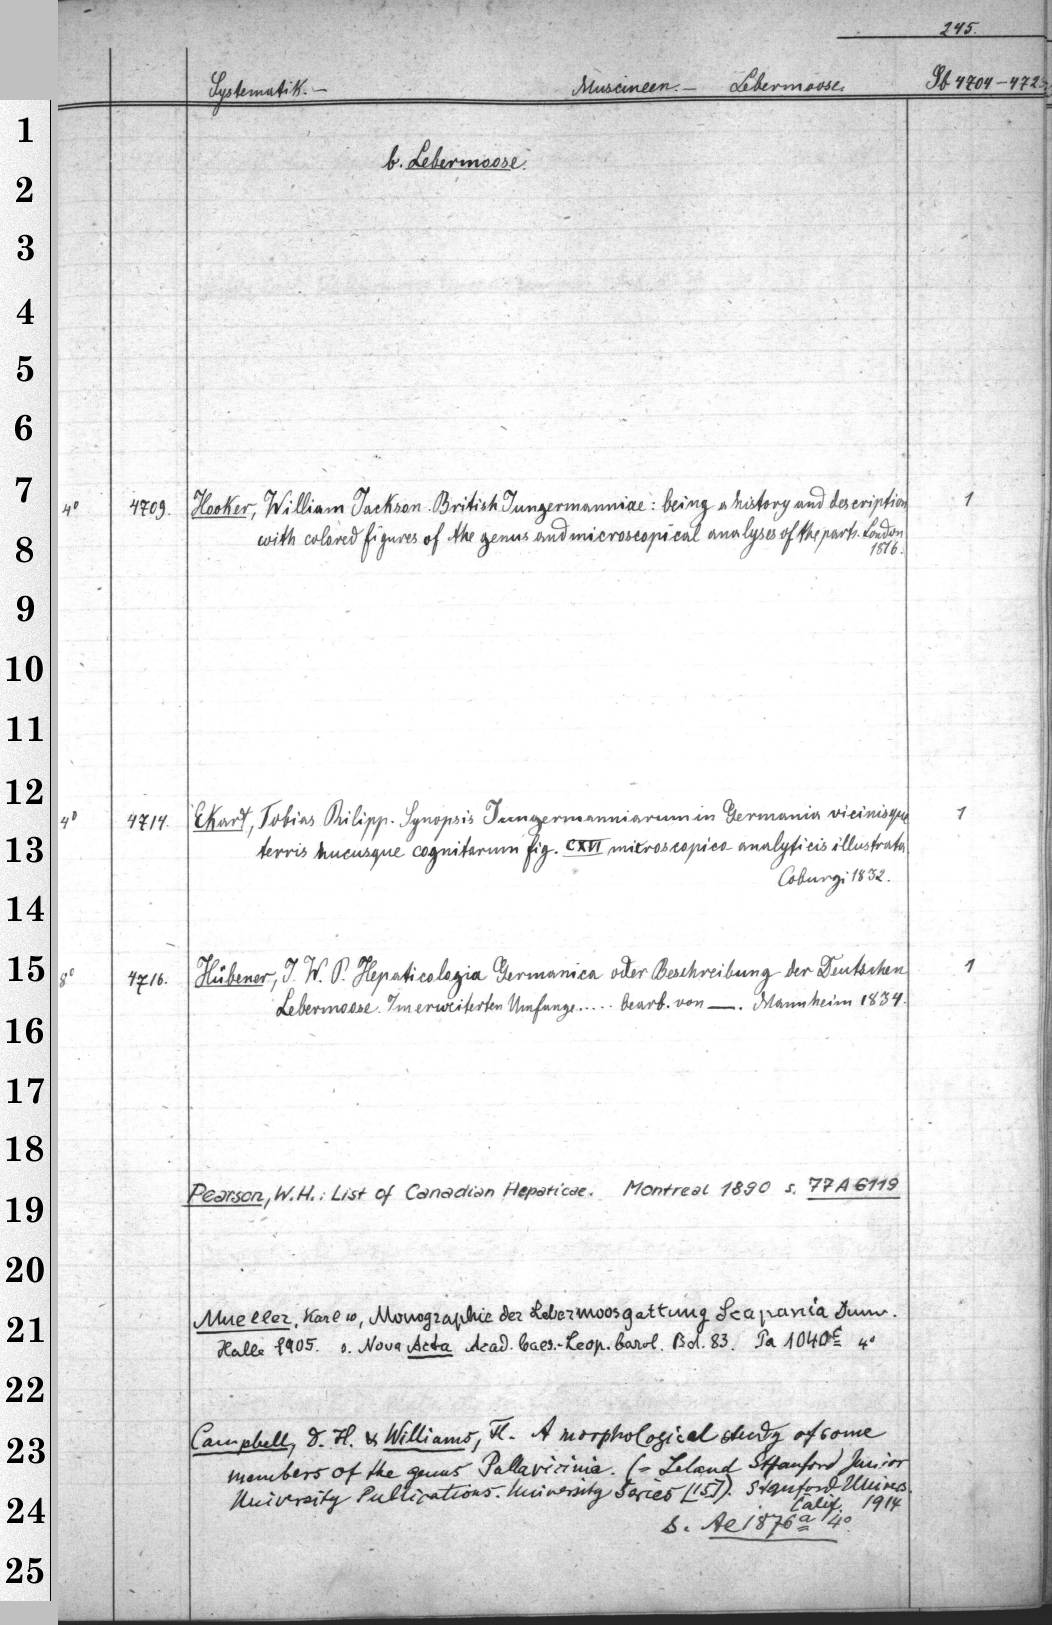 245.
Systematik.— Muscineen.— Lebermoose. Pb 4704–472
1
b. Lebermoose.
2
3
4
5
6
7
4° 4709. Hooker, William Jackson. British Jungermanniae: being a history and description 1
with colored figures of the genus and microscopical analyses of the parts. London
1816.
8
9
10
11
12
4° 4714. Ekart, Tobias Philipp. Synopsis Jungermanniarum in Germania vicinisque 1
13
terris hucusque cognitarum fig. CXVI microscopico analyticis illustrata
Coburgi 1832.
14
15
8° 4716. Hübener, J. W. P. Hepaticologia Germanica oder Beschreibung der Deutschen 1
Lebermoose. Im erweiterten Umfange..... bearb. von —. Mannheim 1834.
16
17
18
Pearson, W.H.: List of Canadian Hepaticae. Montreal 1890 s. 77 A 6119
19
20
Mueller, Karl, Monographie der Lebermoosgattung Scapania Dum.
21
Halle 1905. s. Nova Acta Acad. Caes.-Leop. Carol. Bd. 83. Pa 1040c 4°
22
Campbell, D. H. & Williams, Fl. A morphological study of some
23
members of the genus Pallavicinia. (= Leland Stanford Junior
University Publications. University Series [15]). Stanford Univers.
24
Calif. 1914
s. Ae 1876a 4°
25